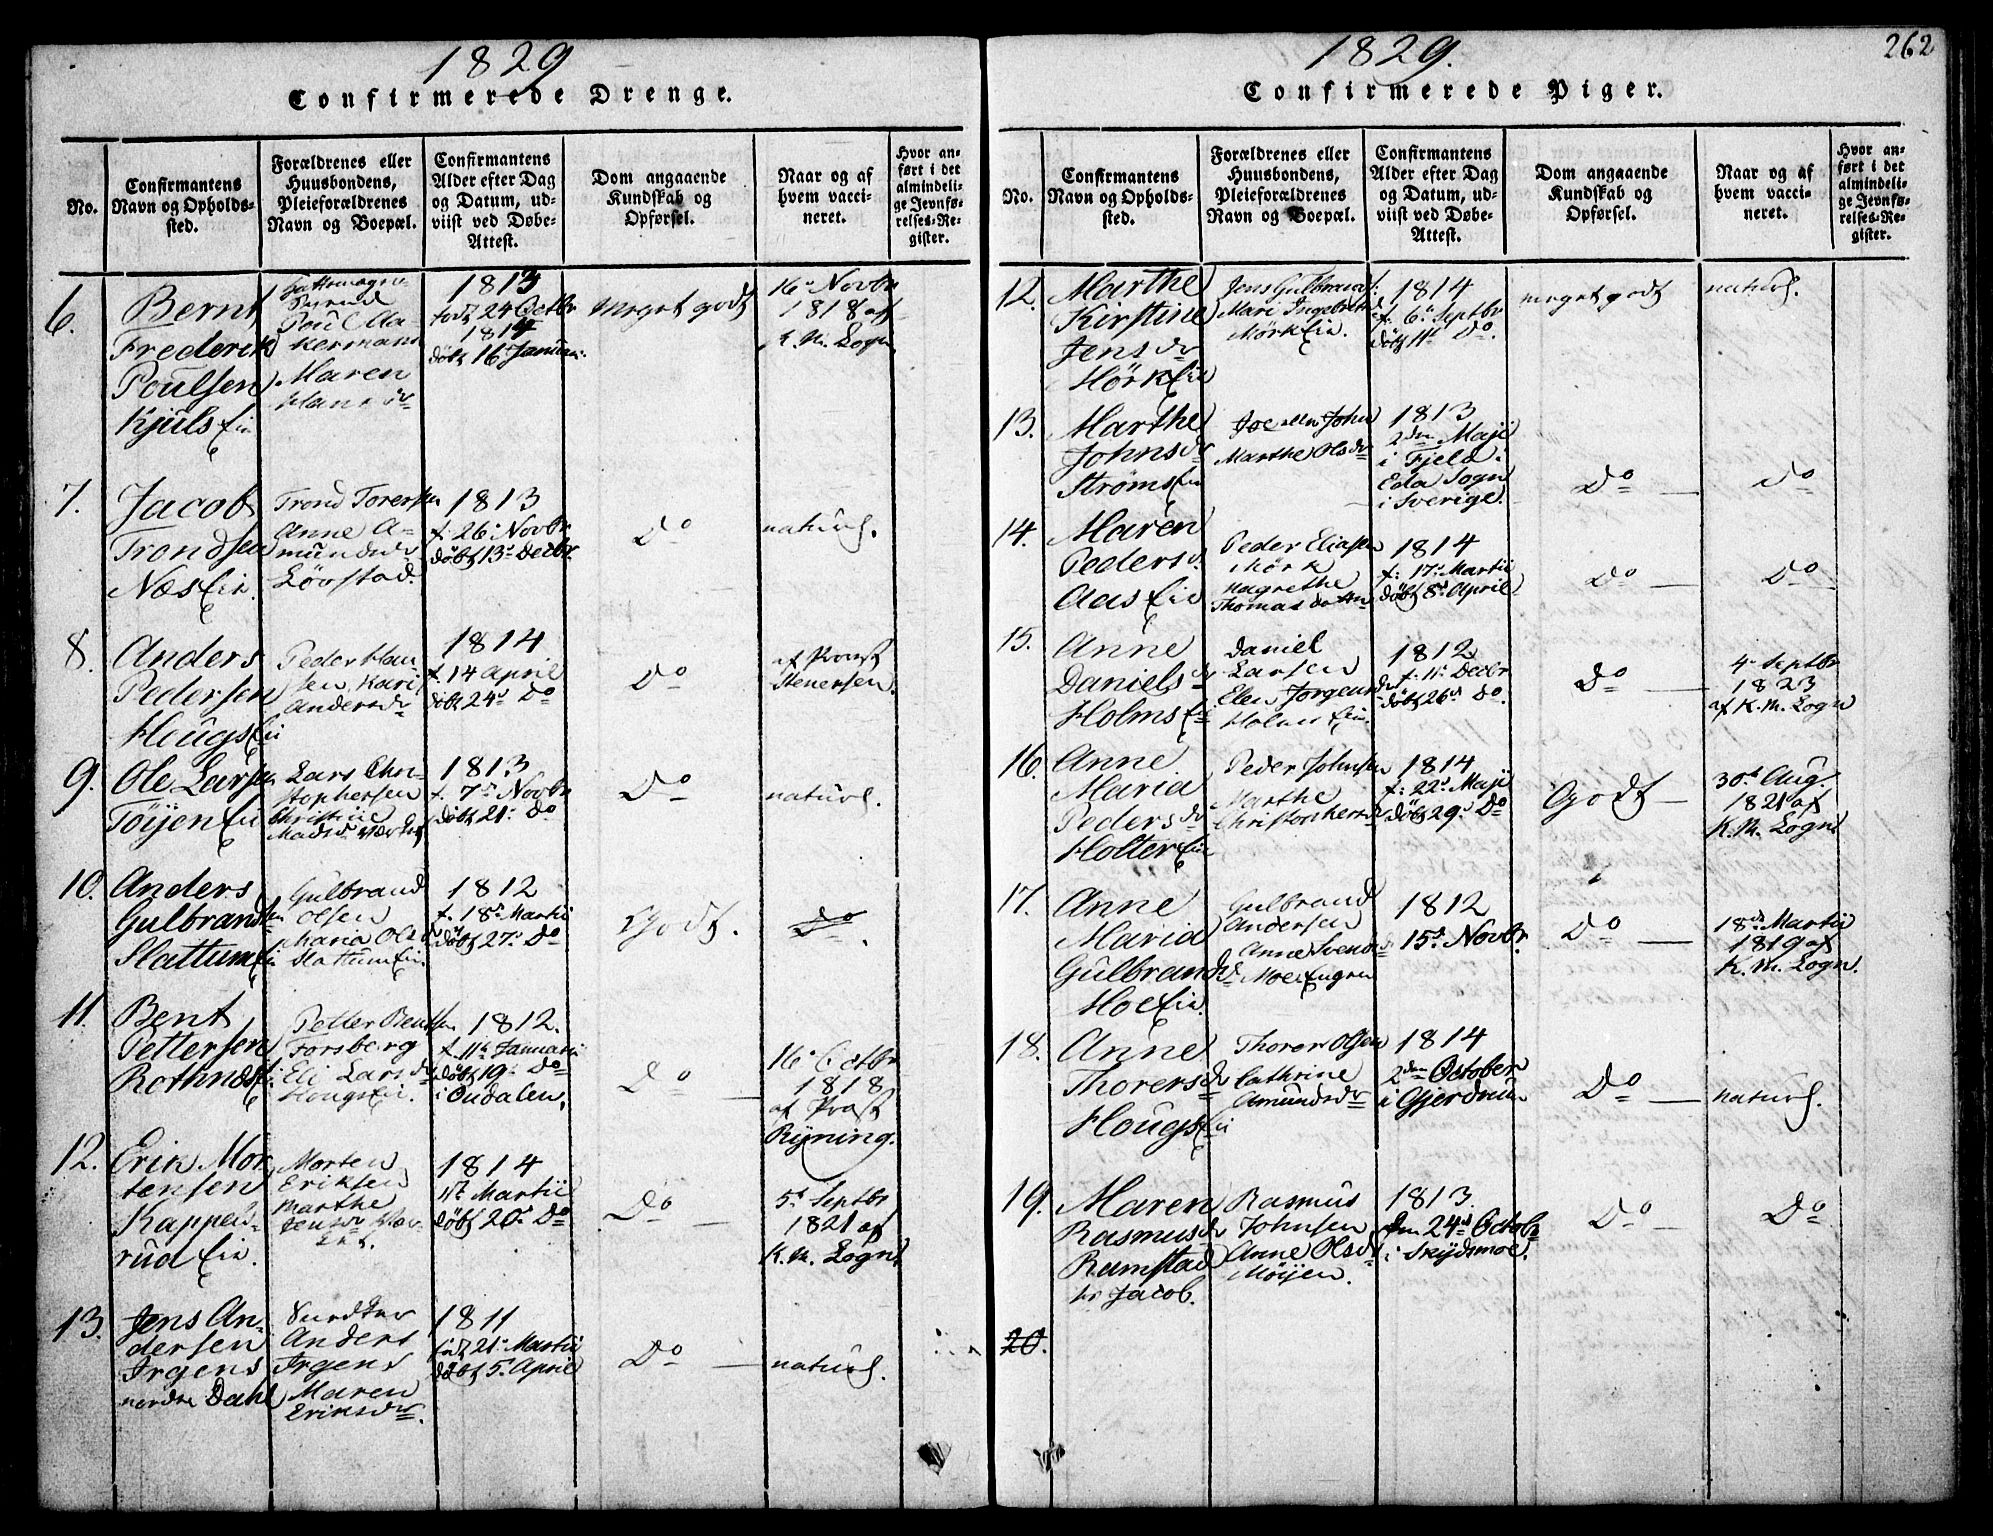 1829
Confirmerede Drenge.
No.
Confirmantens
Navn og Opholds-
sted.
Forældrenes eller
Huusbondens,
Pleieforældrenes
Navn og Boepæl.
Confirmantens
Alder efter Dag
og Datum, ud-
viist ved Døbe-
Attest.
Dom angaaende
Kundskab og
Opførsel.
Naar og af
hvem vacci-
neret.
Hvor an-
ført i det
almindeli-
ge Jevnfø-
relses-Re-
gister.
6.
Bernt
Frederik
Poulsen
Kjuls Ei
Poul Ma-
Maren
1813
født 24 Octbr
1814
döbt 16 Januar
Meget godt
16 Novbr
1818 af
K. M. Logn
7.
Jacob
Trondsen
Næs Ei.
Trond Torersen
Anne A-
mundsdr
Lövstad
1813
f. 26 Novbr
döbt 13 Decbr
Do
naturl.
8.
Anders
Pedersen
Hougs Ei
Peder Han-
sen, Kari
Andersdr
1814
f. 14 April
döbt 24 Do
Do
af Provst
Stenersen.
9.
Ole Larsen
Töijen Ei
Lars Chri-
stophersen
Christine
1813
f. 7 Novbr
döbt 21 Do
Do
naturl.
10.
Anders
Gulbrandsen
Slattum Ei.
Gulbrand
Olsen
Maria Olsd
Slattum Ei.
1812
f. 18 Martii
döbt 27 Do
Godt.
Do
11.
Bent
Pettersen
Rothnæs Ei
Petter Bentsen
Forsberg
Eli Larsd
Hougs Ei.
1812.
f. 11 Januarii
döbt 19 Do
i Oudalen.
Do
16 Octbr
1818
af Provst
Rÿning.
12.
Erik Mor
tensen
Kappels-
rud Ei.
Morten
Eriksen
Marthe
1814
Martii
döbt 20 Do
Do
5 Septbr
1821 af
K. M. Logn
13.
Jens An-
dersen
Irgens
nordre Dahl
Anders
Irgens
Maren
Eriksdr.
1811
født 21 Martii
döbt 5 April
Do
naturl.
262
1829.
Confirmerede Piger.
No.
Confirmantens
Navn og Opholds-
sted.
Forældrenes eller
Huusbondens,
Pleieforældrenes
Navn og Boepæl.
Confirmantens
Alder efter Dag
og Datum, ud-
viist ved Døbe-
Attest.
Dom angaaende
Kundskab og
Opførsel.
Naar og af
hvem vacci-
neret.
Hvor an-
ført i det
almindeli-
ge Jevnfø-
relses-Re-
gister.
12.
Marthe
Kirstine
Jensdr
Mörk Ei
Jens Gulbrand:
Mari Ingebretsd
Mörk Ei.
1814
f. 6 Septbr
döbt 11 Do.
meget godt
naturl.
13.
Marthe
Johnsdr
Ströms Ei
Joe eller John
Marthe Olsdr
1813
2den Maji
i Fjeld
Eda Sogn
i Sverige.
Do
Do
14.
Maren
Pedersd.
Aas Ei
Peder Eliasen
Mörk
Magrethe
Thomasdatter
1814
f: 17 Martii
döbt 8 April
Do
Do
15.
Anne
Danielsdr
Holms Ei
Daniel
Larsen
Elen Jorgensdr
Holms Ei.
1812
f. 11 Decbr
döbt 26 Do.
Do
4 Septbr
1823
af K. M. Logn
16.
Anne
Maria
Pedersdr
Holter Ei
Peder Johnsen
Marthe
Christophersdr
1814
f: 22 Maji
döbt 29 Do
Godt
30 Aug.
1821 af
K. M. Logn
17.
Anne
Maria
Gulbrandsd.
Moe Ei
Gulbrand
Andersen
Anne Svendsd
Moe Engen
1812
15 Novbr
Do
18 Martii
1819 af
K. M. Logn.
18.
Anne
Thorersdr
Hougs Ei
Thorer Olsen
Cathrine
Amundsdr
1814
2den October
i Gjerdrum
Do
naturl.
19.
Maren
Rasmusdr
Ramstad
hr Jacob.
Rasmus
Johnsen
Anne Olsdr
Möijen.
1813
den 24 Octob
i Skÿdsmoe.
Do
Do
20.